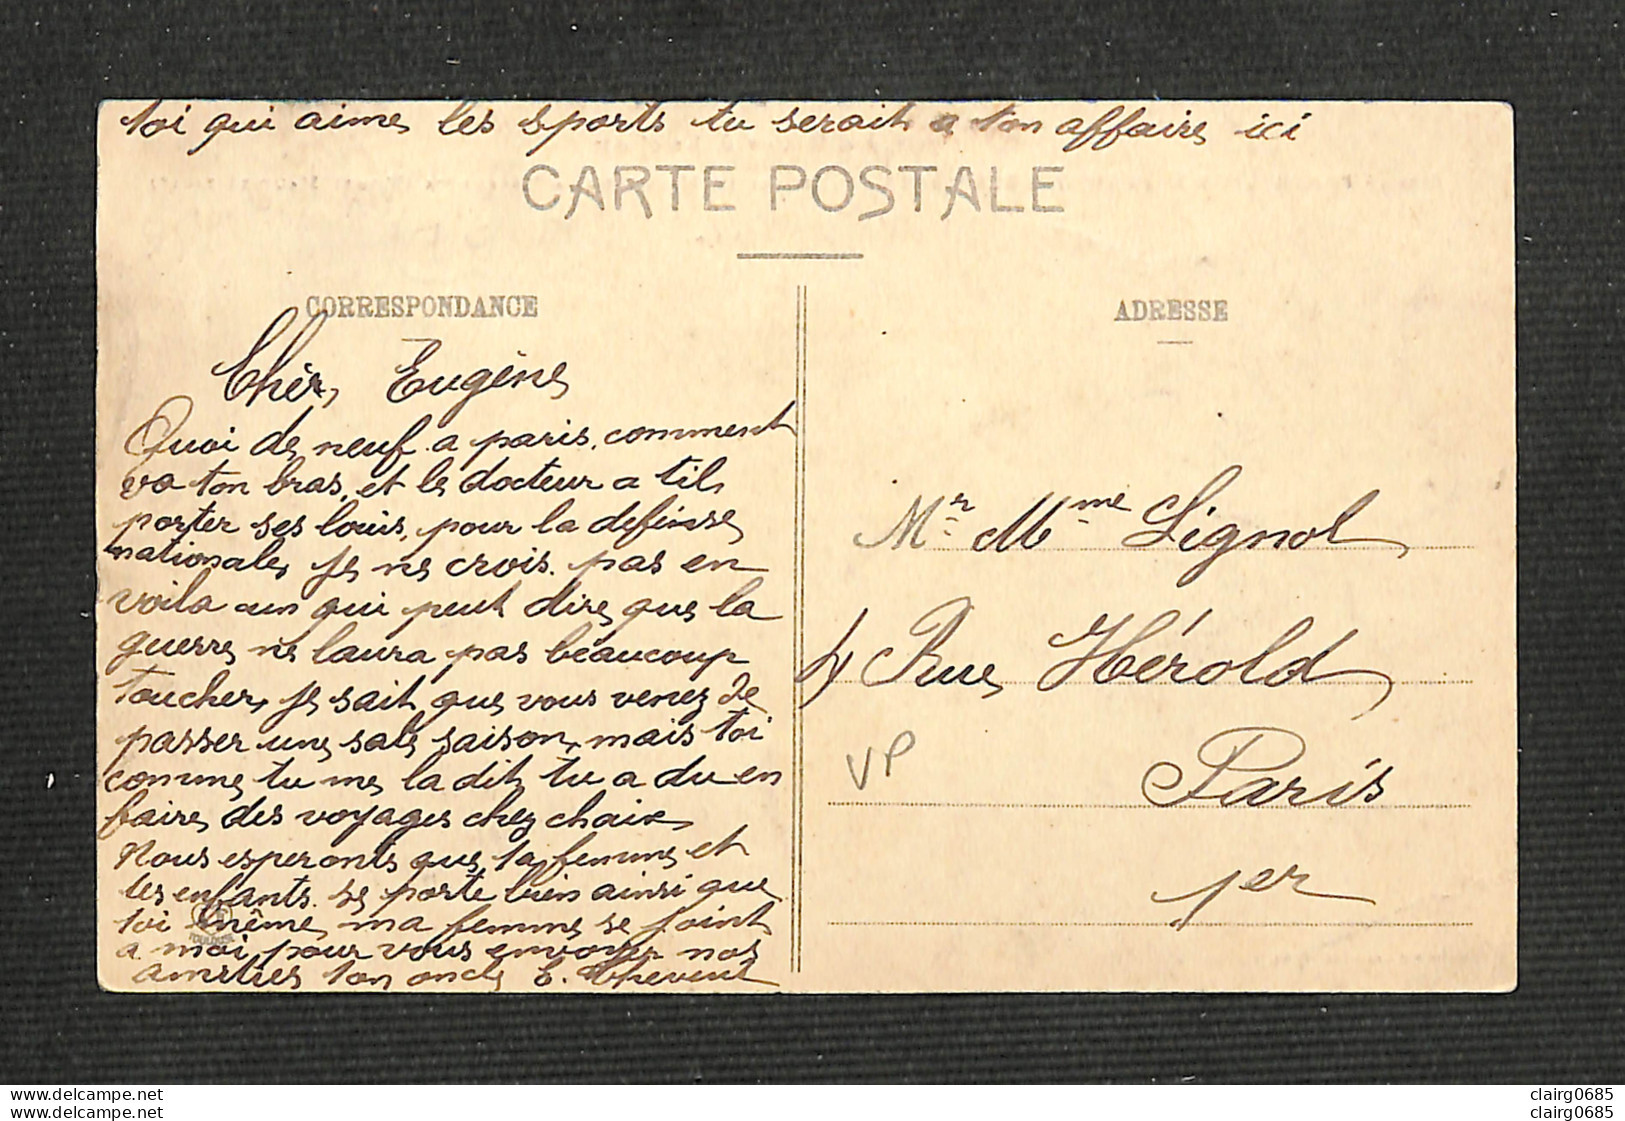 toi qui aime les sports tu serait a ton affaire ici
CARTE POSTALE
CORRESPONDANCE
Cher Eugène
Quoi de neuf a paris. comment
va ton bras, et le docteur a til
porter ses louis, pour la defense
nationale, je ne crois. pas en
voila un qui peut dire que la
guerre ne laura pas beaucoup
toucher, je sait que vous venez de
passer une sale saison, mais toi
comme tu me la dit, tu a du en
faire des voyages chez chaix
Nous esperonts que ta femme et
les enfants. se porte bien ainsi que
toi même, ma femme se joint
a moi pour vous envoyer nos
amitiés ton oncle E.
ADRESSE
Mr Mme Lignol
4 Rue Hérold
Paris
1er
VP
clairg0685
clairg0685
www.delcampe.net
www.delcampe.net